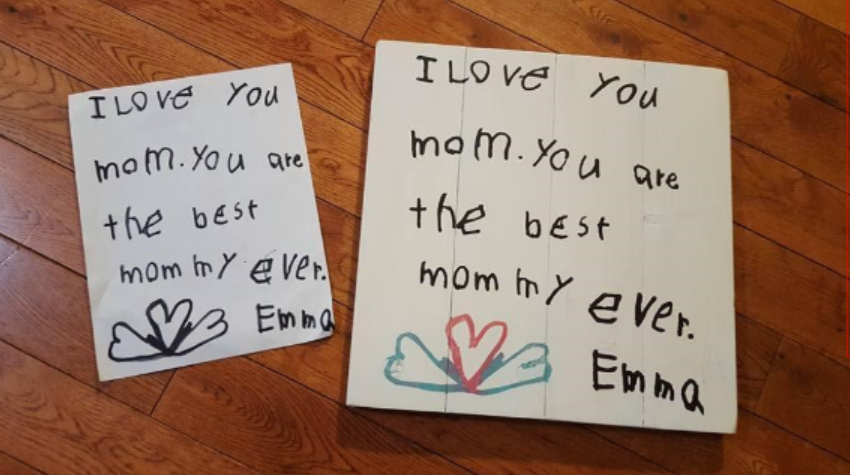 I LOVE YOU
mom. You are
the best
mommy ever.
Emma
I LOVE YOU
mom. You are
the best
mommy ever.
Emma